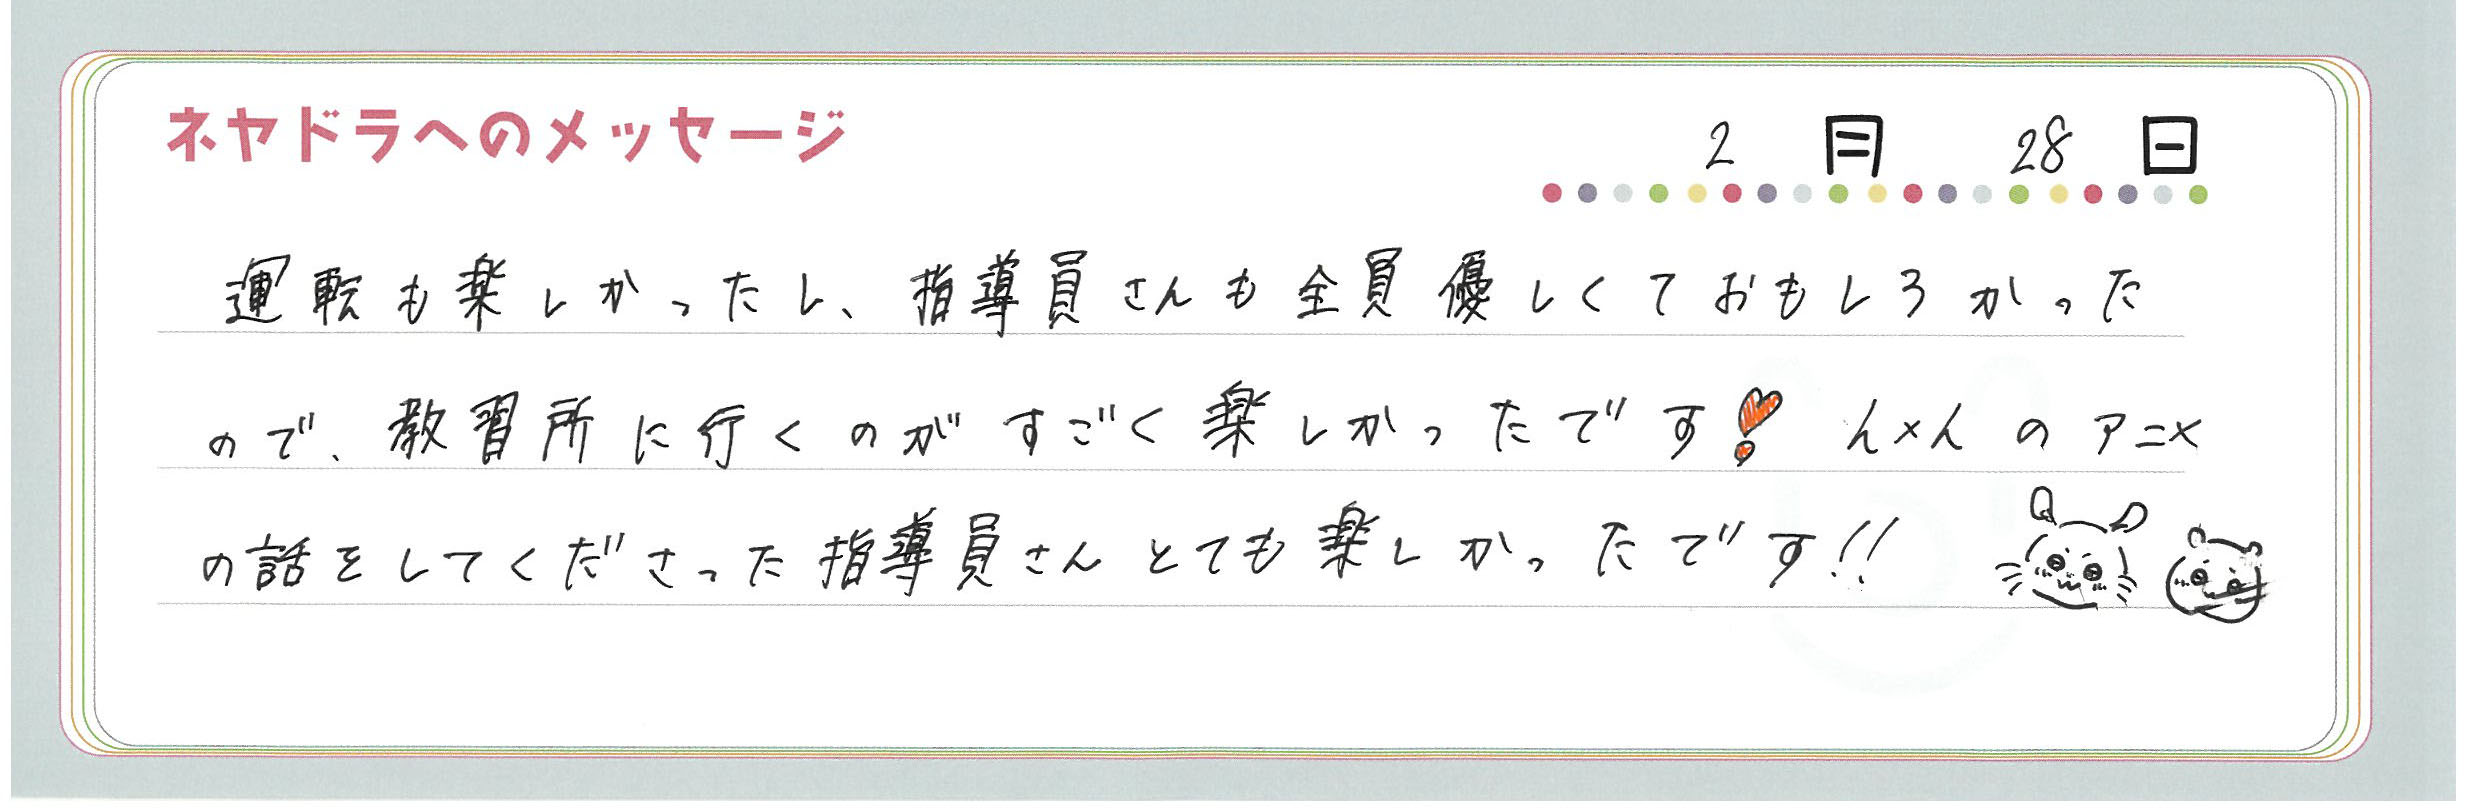 ネヤドラへのメッセージ
2月28日
運転も楽しかったし、指導員さんも全員優しくておもしろかった
ので、教習所に行くのがすごく楽しかったです! ん×んのアニメ
の話をしてくださった指導員さんとても楽しかったです!!